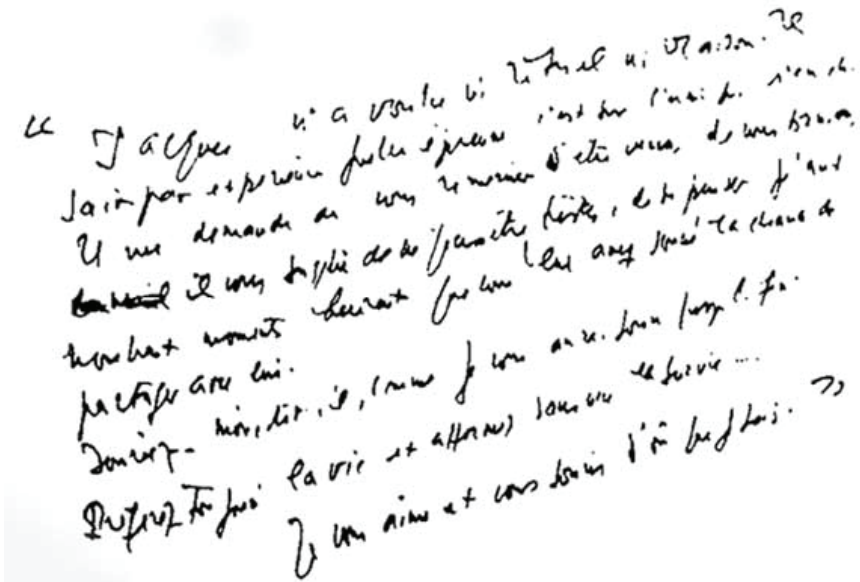 « Jacques n'a voulu ni rituel ni oraison. Il
sait par expérience quelle épreuve c'est pour l'ami qui s'en ch.
Il me demande de vous remercier d'être venus, de vous bénir,
il vous supplie de ne pas être tristes, de ne penser qu'aux
nombreux moments heureux que vous lui avez donné la chance de
partager avec lui.
Souriez-moi, dit-il, comme je vous aurai souri jusqu'à la fin.
Préférez toujours la vie et affirmez sans cesse la survie...
Je vous aime et vous souris d'où que je sois. »